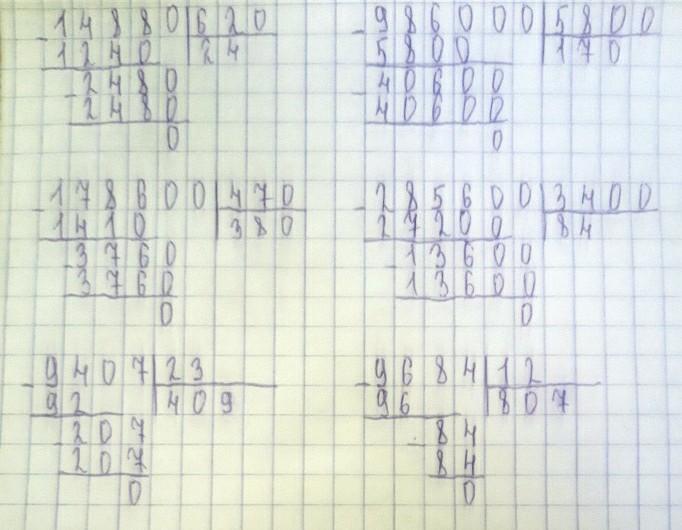 -14880|620
1240 24
-2480
2480
0
-986000|5800
5800 170
-40600
40600
0
-178600|470
1410 380
-3760
3760
0
-285600|3400
27200 84
-13600
13600
0
-9407|23
92 409
-207
207
0
-9684|12
96 807
-84
84
0